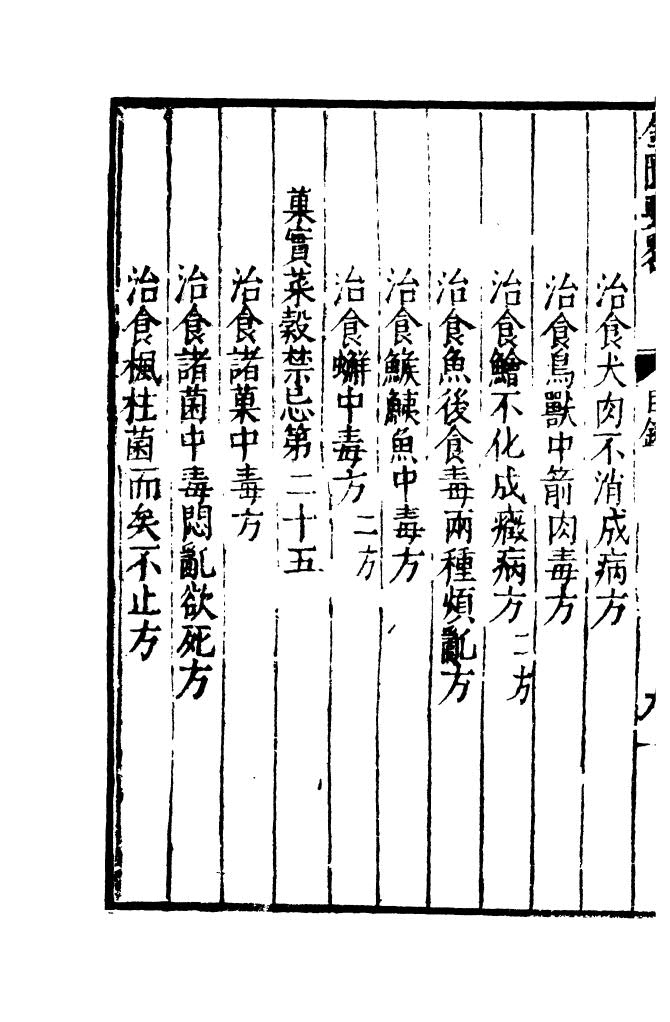 治食犬肉不消成病方
治食鳥獸中箭肉毒方
治食鱠不化成癥病方二方
治食魚後食毒兩種煩亂方
治食鯸鮧魚中毒方
治食蠏中毒方二方
菓實菜穀禁忌第二十五
治食諸菓中毒方
治食諸菌中毒悶亂欲死方
治食楓柱菌而矣不止方